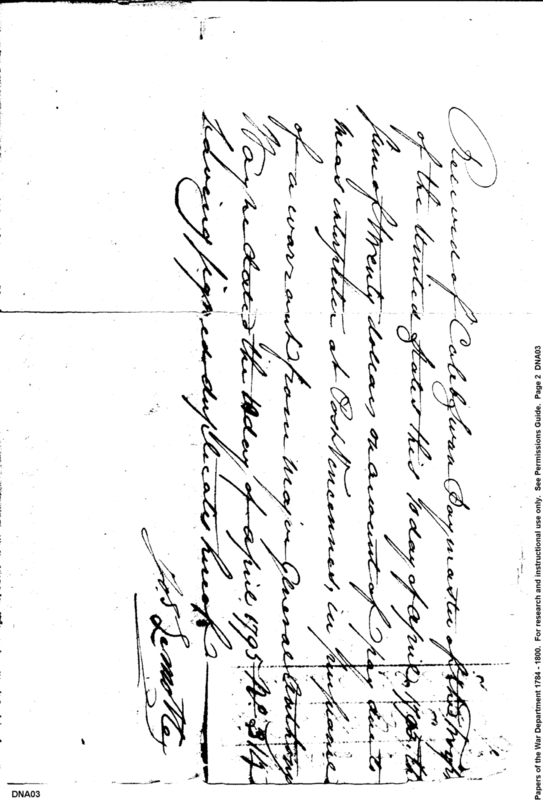 Received of Caleb Swan Paymaster of the Troops
of the United States this 10 day of april 1795 the
sum of twenty dollars on account of pay due to
me as interpreter at Post Vencennes, in pursuance
of a warrant from Major General Anthony
Wayne dated the 10 day of april 1795 No 319.
having signed duplicates hereof
Jos
Papers of the War Department 1784 - 1800. For research and instructional use only. See Permissions Guide. Page 2 DNA03
DNA03